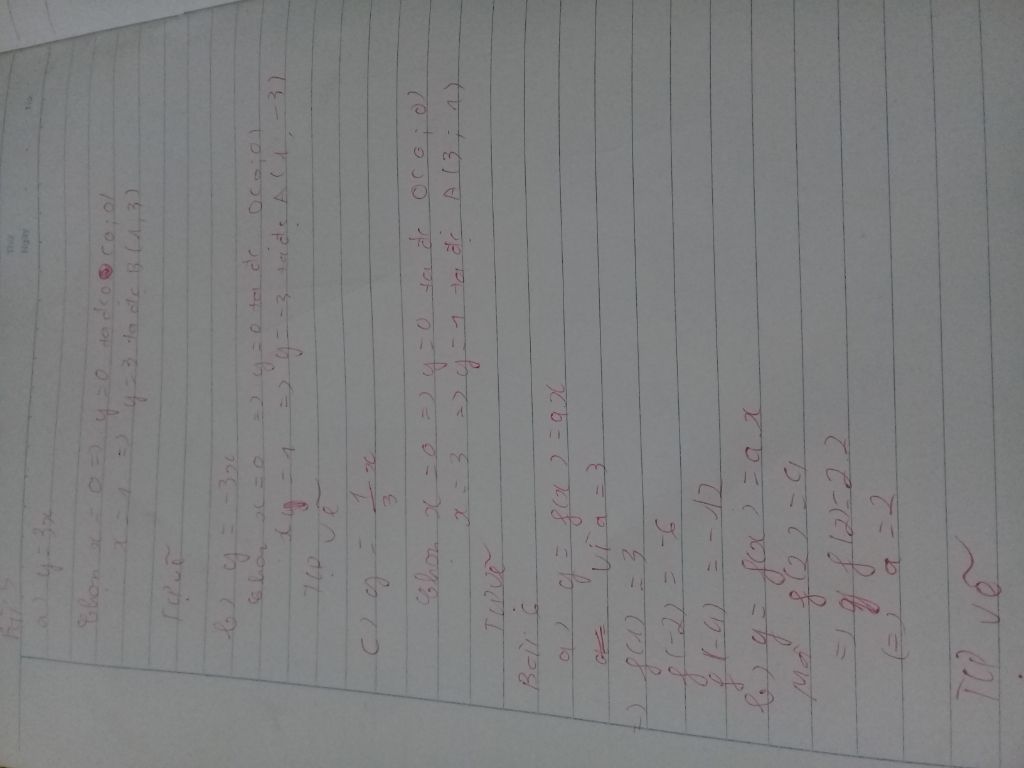 a) y = 3x
Chọn x = 0 => y = 0 ta đc O (0;0)
x = 1 => y = 3 ta đc B (1,3)
Tự vẽ
b) y = -3x
Chọn x = 0 => y = 0 ta đc O(0;0)
x = 1 => y = -3 ta đc A (1, -3)
Tự vẽ
c) y = 1/3 x
Chọn x = 0 => y = 0 ta đc O(0;0)
x = 3 => y = 1 ta đc A (3;1)
Tự vẽ
Bài 6
a) y = f(x) = ax
Vì a = 3
=) f(1) = 3
f(-2) = -6
f(-4) = -12
b) y = f(x) = ax
Mà f(2) = 4
(=) a = 2
vẽ